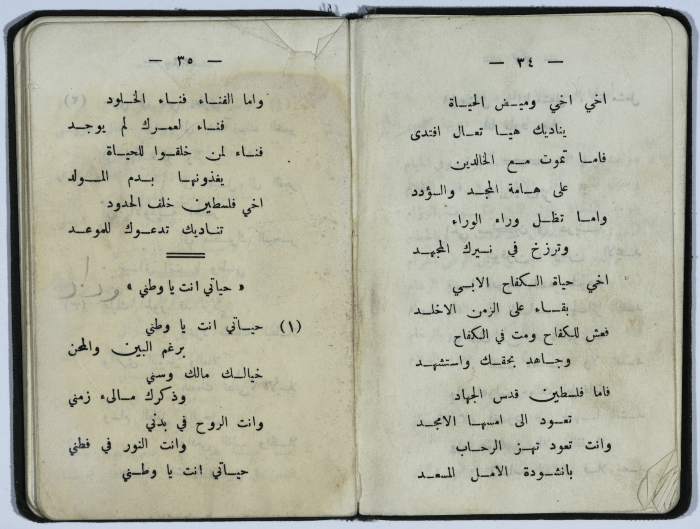 — ٣٤ —
اخي اخي وميض الحياة
يناديك هيا تعال افتدى
فاما تموت مع الخالدين
على هامة المجد والسؤدد
واما تظل وراء الوراء
وترزخ في نيرك المجهد
اخي حياة الكفاح الابي
بقاء على الزمن الاخلد
فعش للكفاح ومت في الكفاح
وجاهد بحقك واستشهد
فاما فلسطين قدس الجهاد
تعود الى امسها الامجد
وانت تعود تهز الرحاب
بانشودة الامل المسعد
— ٣٥ —
واما الفناء فناء الخلود
فناء لعمرك لم يوجد
فناء لمن خلقوا للحياة
يغذونها بدم المولد
اخي فلسطين خلف الحدود
تناديك تدعوك للموعد
« حياتي انت يا وطني »
(١) حياتي انت يا وطني
برغم البين والمحن
خيالك مالك وسني
وذكرك مالىء زمني
وانت الروح في بدني
وانت النور في فطني
حياتي انت يا وطني